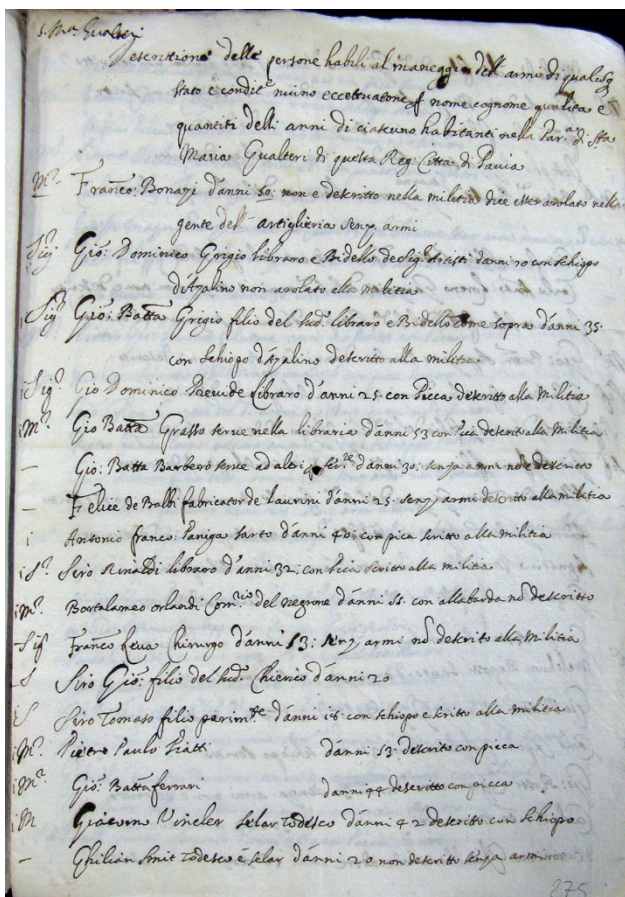 S. Ma. Gualteri
Descritione delle persone habili al maneggio dell armi di qualsisia
stato e condit.e niuno eccettuatone nome cognome qualita e
quantiti delli anni di ciascuno habitanti nella Par.a di Sta
Maria Gualteri di questa Reg. Citta di Pavia
M.r Franco: Bonazi d'anni 50: non e descritto nella militia dice esser arolato nella
gente dell' artiglieria senza armi
Sig.r Gio: Dominico Grigio libraro e Bidello d'anni 70 con schiopo
d'Azalino non arolato alla militia
Sig.r Gio: Batta Grigio filio del sud. libraro e Bidello come sopra d'anni 35:
con schiopo d'Azalino descritto alla militia
i Sig.r Gio Dominico libraro d'anni 25. con Picca descritto alla militia
i M.r Gio Batta Grasso serve nella libraria d'anni 53 con Pica descrit alla Militia
– Gio: Batta Barbero serve ad altri d'anni 30: senza armi descrito
– Felice de Balbi fabricator de Laurini d'anni 25. senz armi descritto alla militia
i Antonio franco: Paniga sarto d'anni 40: con pica scritto alla militia
i S.r Siro Rinaldi libraro d'anni 32: con Pica scritto alla militia
i M.r Bortalameo orlandi del negrone d'anni 55. con allabarda no descritto
– Sig Franco Chirurgo d'anni 53: senz armi no descrito alla Militia
– S Siro Gio: filio del sud. Chierico d'anni 20
i S Siro Tomaso filio parim.te d'anni 18: con schiopo e scritto alla militia
i M.r Pietro Paulo Piatti d'anni 53 descrito con picca
i M.r Gio: Batta ferrari d'anni 44 descritto con picca
i M Giacomo Vincler selar Todesco d'anni 42 descritto con schiopo
– Ghilian Smit Todesco e selar d'anni 20 non descritto senza armi
275